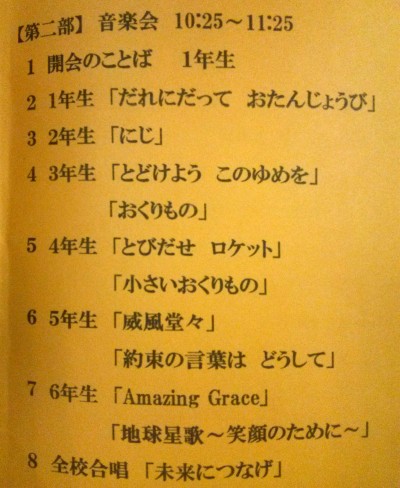 【第二部】 音楽会 10:25～11:25
1 開会のことば 1年生
2 1年生 「だれにだって おたんじょうび」
3 2年生 「にじ」
4 3年生 「とどけよう このゆめを」
「おくりもの」
5 4年生 「とびだせ ロケット」
「小さいおくりもの」
6 5年生 「威風堂々」
「約束の言葉は どうして」
7 6年生 「Amazing Grace」
「地球星歌～笑顔のために～」
8 全校合唱 「未来につなげ」